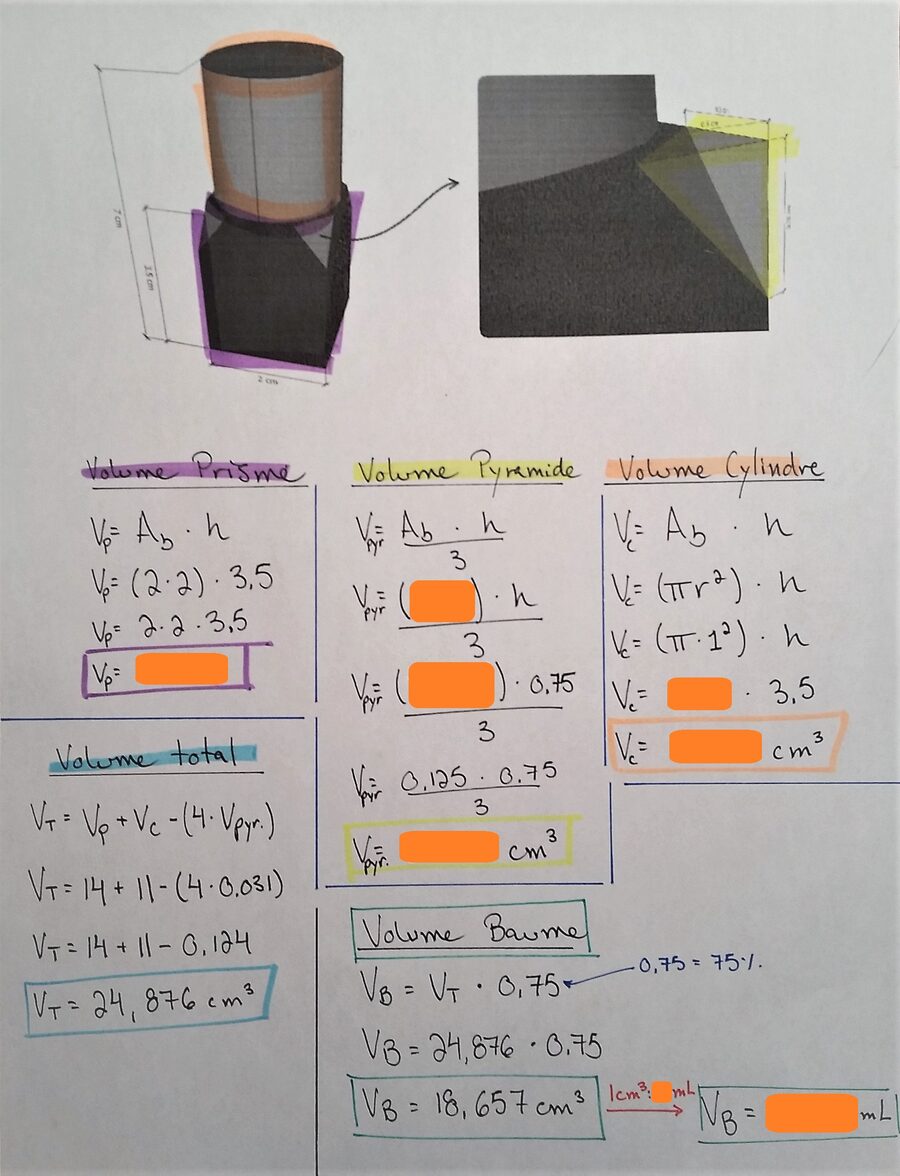 7 cm
3.5 cm
2 cm
Volume Prisme
Vp = Ab · h
Vp = (2·2) · 3,5
Vp = 2·2·3,5
Vp =
Volume Pyramide
Vpyr = Ab · h
3
Vpyr = ( ) · h
3
Vpyr = ( ) · 0,75
3
Vpyr = 0,125 · 0.75
3
Vpyr. = cm³
Volume Cylindre
Vc = Ab · h
Vc = (πr²) · h
Vc = (π·1²) · h
Vc = · 3,5
Vc = cm³
Volume total
VT = Vp + Vc - (4·Vpyr.)
VT = 14 + 11 - (4·0,031)
VT = 14 + 11 - 0,124
VT = 24,876 cm³
Volume Baume
VB = VT · 0,75
0,75 = 75%.
VB = 24,876 · 0.75
VB = 18,657 cm³
1cm³: mL
VB = mL